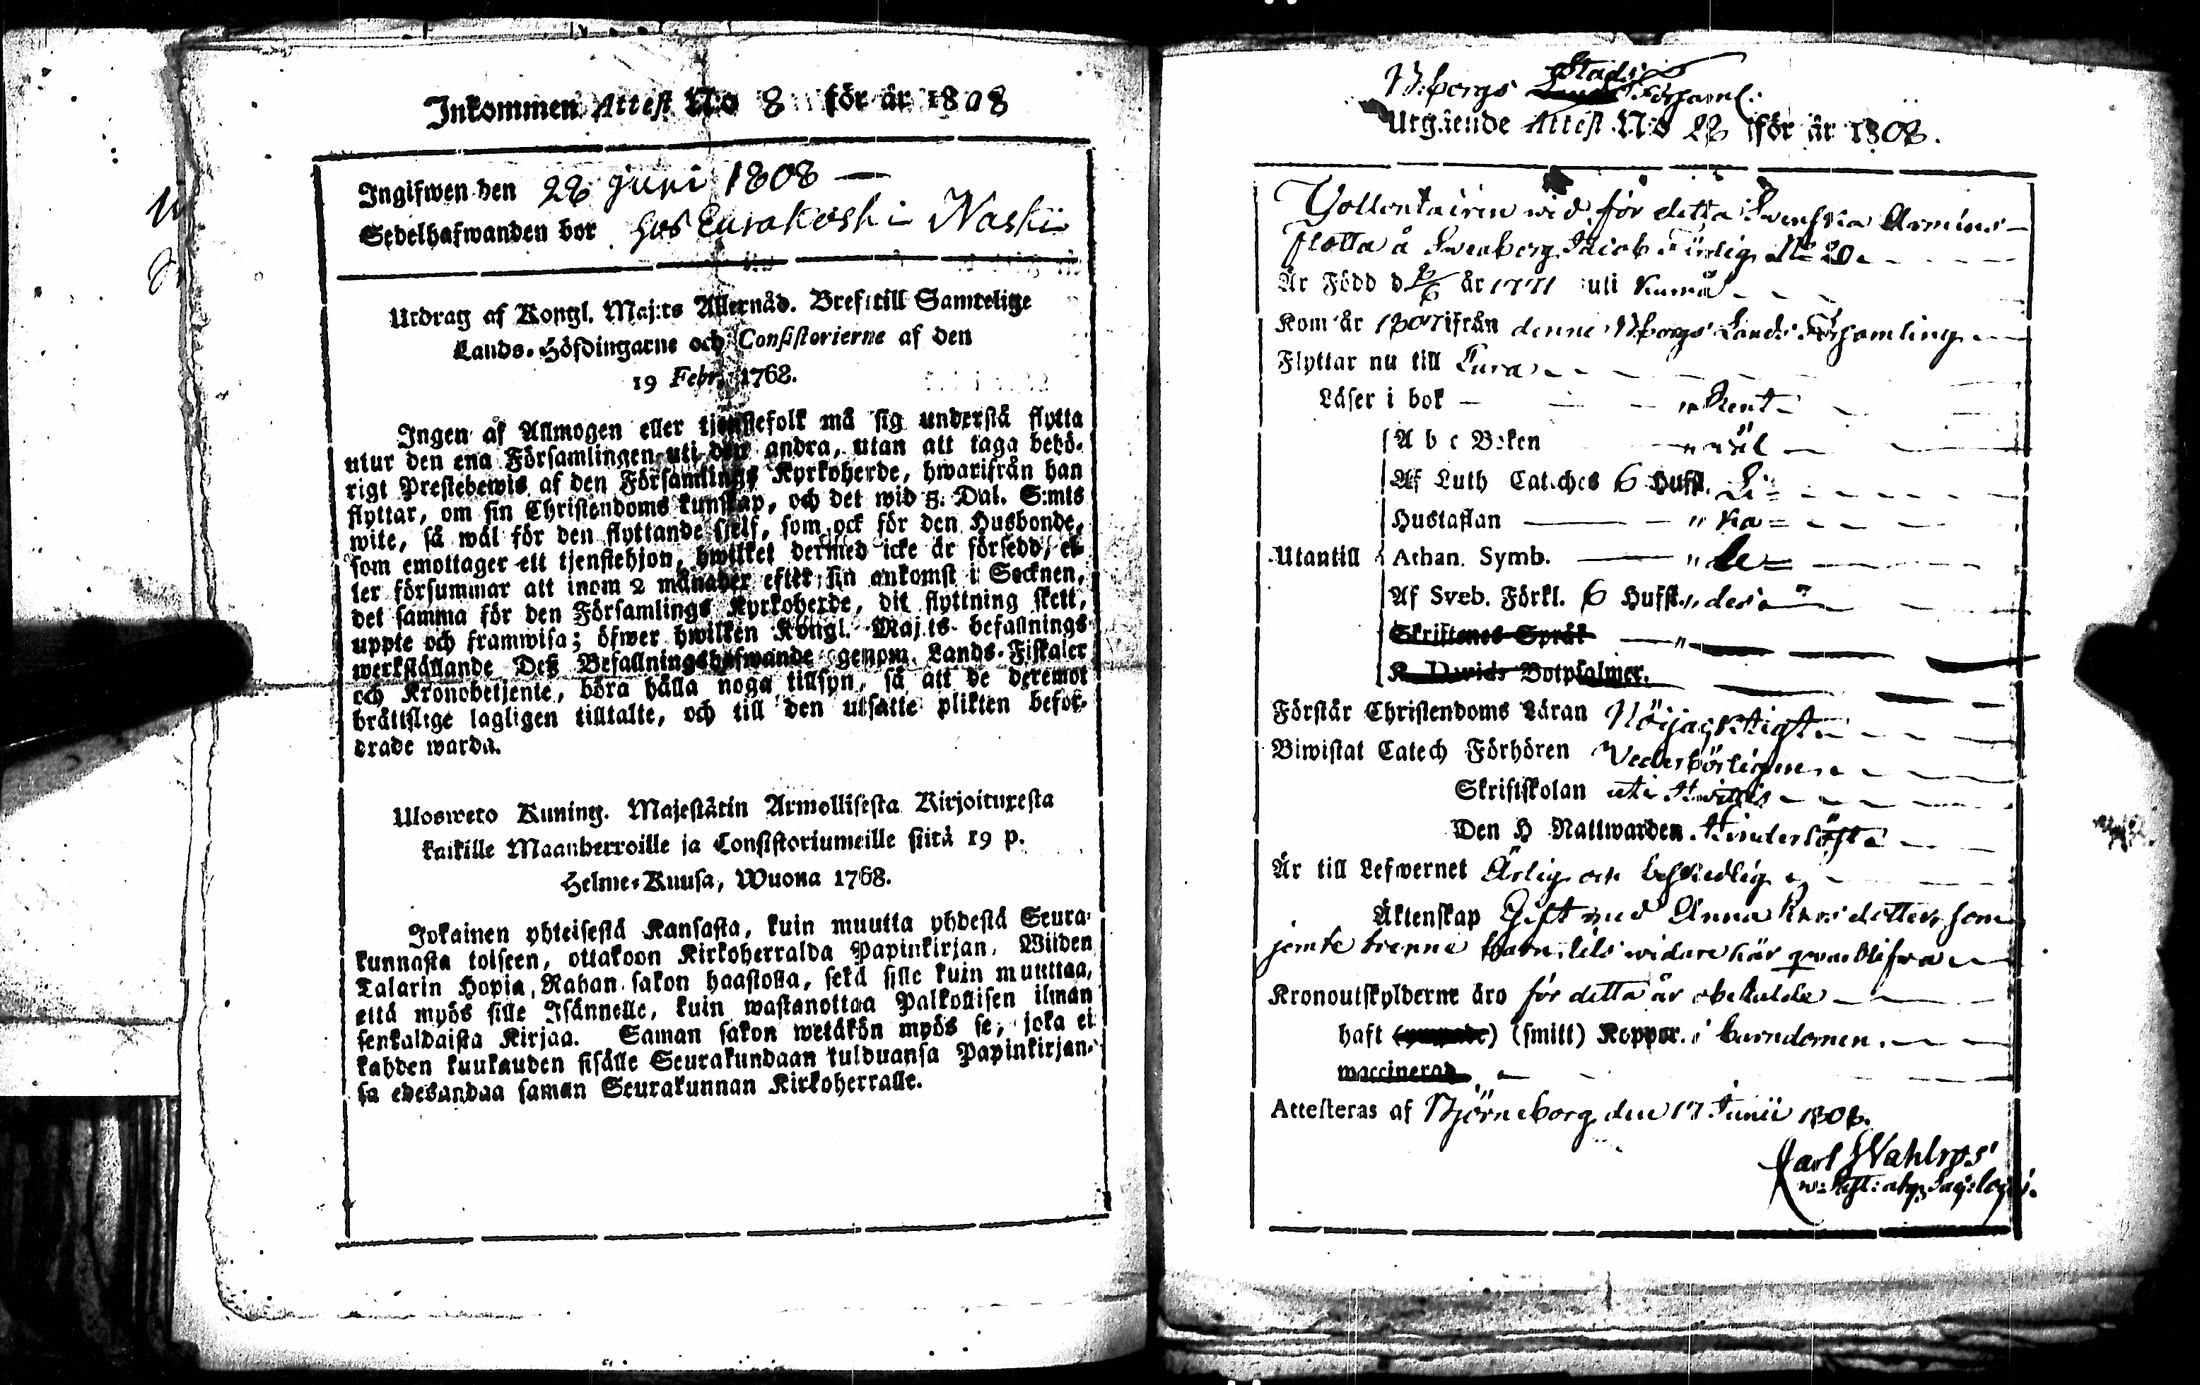 Inkommen Attest No 8 för år 1808
Ingifwen den 28 Juni 1808 —
Sedelhafwanden bor hos Eurakoski Naski
Utdrag af Kongl. Maj:ts Allernåd. Bref till Samtelige
Lands-Höfdingarne och Consistorierne af den
19 Febr. 1768.
Ingen af Allmogen eller tjenstefolk må sig understå flytta
utur den ena Församlingen uti den andra, utan att taga behö-
rigt Prestebewis af den Församlings Kyrkoherde, hwarifrån han
flyttar, om sin Christendoms kunskap, och det wid 5. Dal. S:mts
wite, så wäl för den flyttande sjelf, som ock för den Husbonde,
som emottager ett tjenstehjon, hwilket dermed icke är försedd, el-
ler försummar att inom 2 månader efter sin ankomst i Socknen,
det samma för den Församlings Kyrkoherde, dit flyttning skett,
uppte och framwisa; öfwer hwilken Kongl. Maj:ts befallnings
werkställande Deß Befallningshafwande genom Lands-Fiskaler
och Kronobetjente, böra hålla noga tillsyn, så att de deremot
bråttslige lagligen tilltalte, och till den utsatte plikten befor-
drade warda.
Ulosweto Kuning. Majestätin Armollisesta Kirjoituxesta
kaikille Maanherroille ja Consistoriumeille siitä 19 p.
Helme-Kuusa, Wuona 1768.
Jokainen yhteisestä Kansasta, kuin muutta yhdestä Seura-
kunnasta toiseen, ottakoon Kirkoherralda Papinkirjan, Wiiden
Talarin Hopia Rahan sakon haastolla, sekä sille kuin muuttaa,
että myös sille Isännelle, kuin wastanottaa Palkollisen ilman
senkaldaista Kirjaa. Saman sakon wetäkön myös se, joka ei
kahden kuukauden sisälle Seurakundaan tulduansa Papinkirjan-
sa edesandaa saman Seurakunnan Kirkoherralle.
B:borgs Stads Församl:
Utgående Attest No 28 för år 1808.
Vollontairen wid för detta Svenska Armeens
flotta å Sveaborg Jacob Färdig No 20
Är Född d 2/6 år 1771 uti Kumå
Kom år 1807 ifrån denne B:borgs Lands Församling
Flyttar nu till Eura
Läser i bok — „ Rent
A b c Boken „ wäl
Af Luth Catches 6 Hufst.
Hustaflan
Utantill Athan. Symb.
Af Sveb. Förkl. 6 Hufst.
Skriftenes Språk — „
K. Davids Botpsalmer.
Förstår Christendoms Läran Nöijacktigt
Biwistat Catech Förhören Vederbörligen
Skriftskolan uti
Den H Nattwarden Hinderlöst
Är till Lefwernet Ärlig och beskedlig
Äktenskap Gift med Anna som
jemte trenne barn tils widare här qvarblifva
Kronoutskylderne äro för detta år obetalde
haft (smitt) Koppor i barndomen.
waccinerad
Attesteras af Björneborg den 17 Junii 1808.
Carl Wahlroos